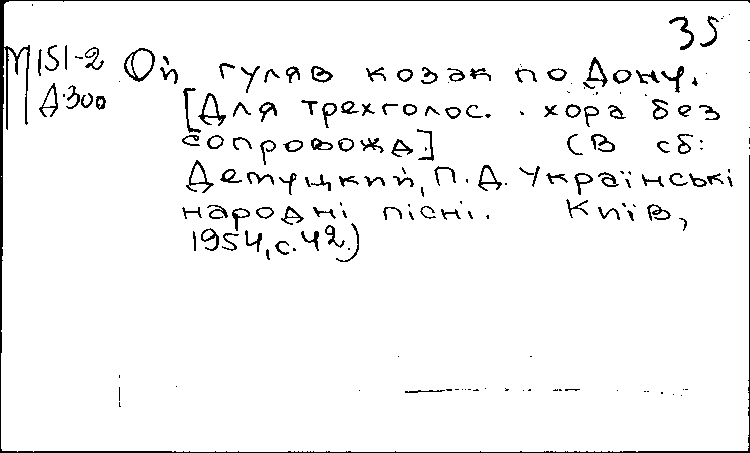 35
М151-2
Д-300
Ой гуляв козак по Дону.
[Для трехголос. хора без
сопровожд.] (В сб:
Демуцкий, П.Д. Українські
народні пісні. Київ,
1954, с. 42.)